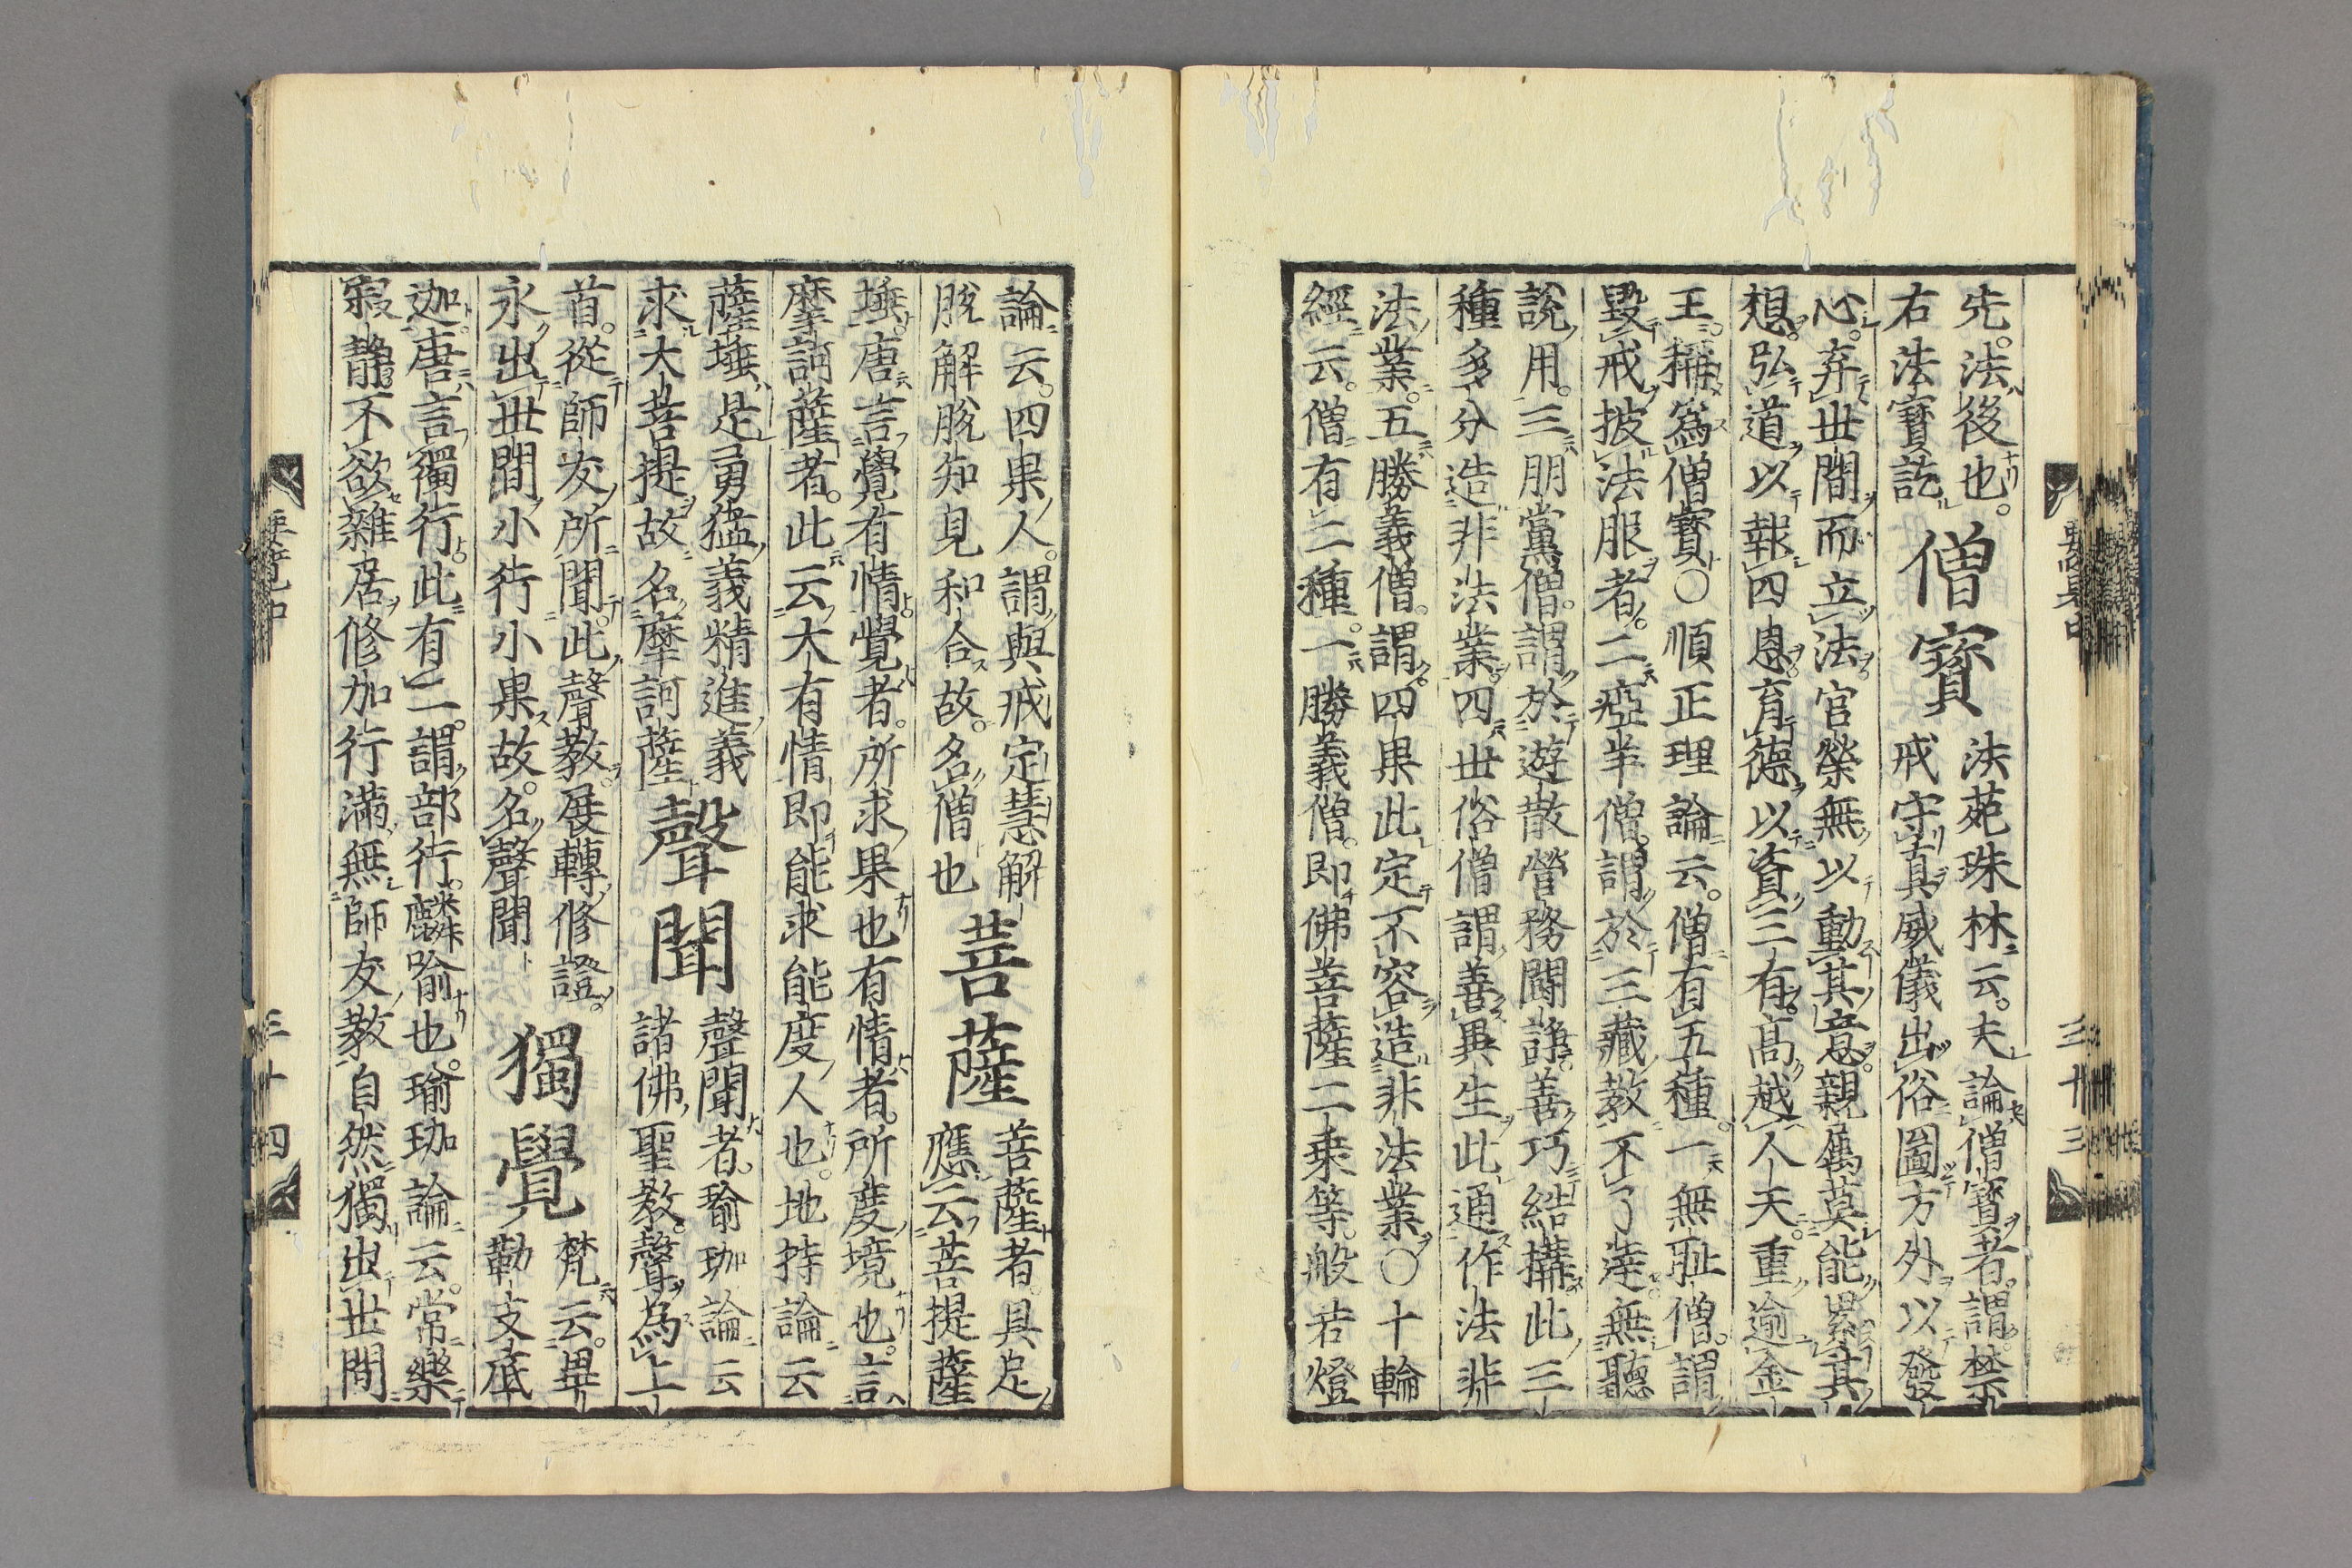 要覽中 三十三
先。法後也。
右法寶訖
僧寶
法苑珠林云。夫論僧寶者。謂禁
戒守真威儀出俗圖方外以發
心。弃世間而立法。官榮無以動其意。親屬莫能累其
想。弘道以報四恩。育德以資三有。高越人天。重逾金
王。稱爲僧寶○順正理論云。僧有五種。一無耻僧。謂
毀戒披法服者。二瘂羊僧。謂於三藏教不了達。無聽
說用。三朋黨僧。謂於遊散營務鬪諍。善巧結搆此三
種多分造非法業。四世俗僧謂善異生此通作法非
法業。五勝義僧。謂四果此定不容造非法業○十輪
經云。僧有二種。一勝義僧。即佛菩薩二乗等。般若燈
論云。四果人。謂與戒定慧解
脫解脫知見和合故。名僧也
菩薩
菩薩者。具足
應云菩提薩
埵。唐言覺有情。覺者。所求果也有情者。所度境也。言
摩訶薩者。此云大有情即能求能度人也。地持論云
薩埵是勇猛義精進義
求大菩提故名摩訶薩
聲聞
聲聞者。瑜珈論云
諸佛聖教。聲為上
首。從師友所聞。此聲教。展轉修證。
永出世間小行小果故。名聲聞
獨覺
梵云。畢
勒支底
迦。唐言獨行。此有二。謂部行。麟喻也。瑜珈論云。常樂
寂靜不欲雜居修加行滿無師友教自然獨出世間
要覽中 三十四